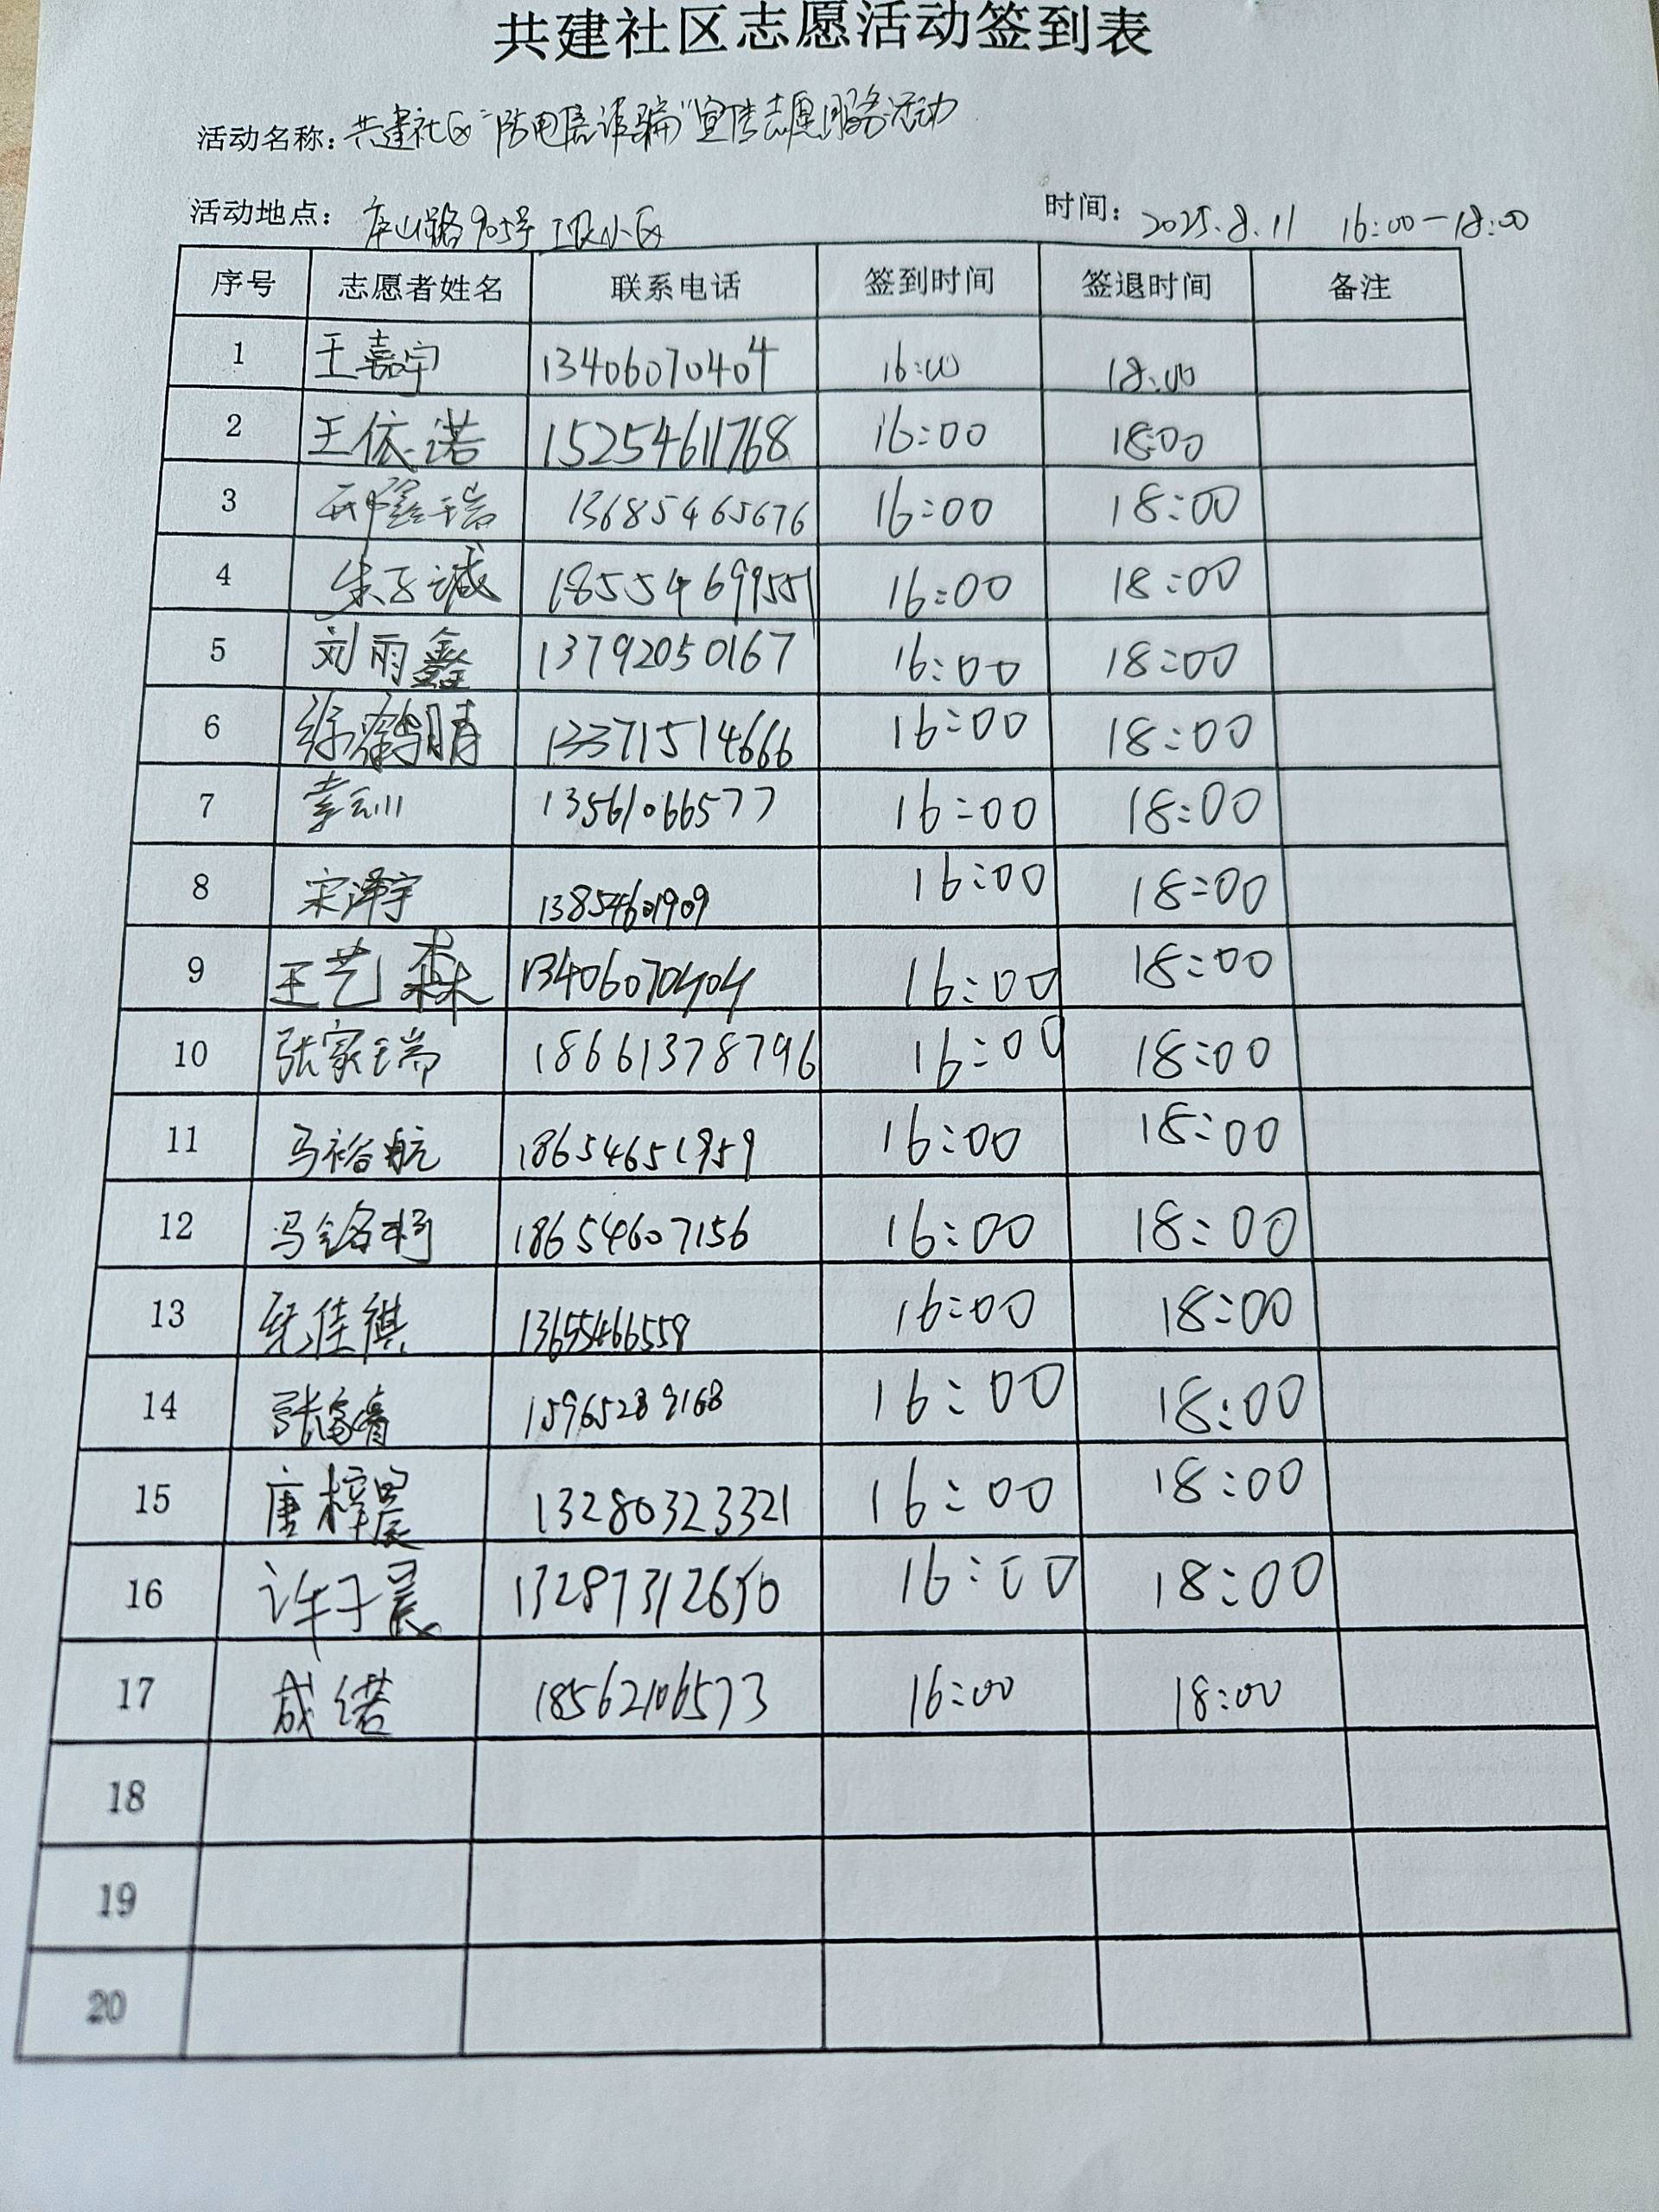 共建社区志愿活动签到表
活动名称：共建社区“防电信诈骗”宣传志愿服务活动
活动地点：庐山路905号 小区 时间：2025.8.11 16:00－18:00
序号 志愿者姓名 联系电话 签到时间 签退时间 备注
1 王嘉宇 13406070404 16:00 18:00
2 王依诺 15254611768 16:00 18:00
3 13685465676 16:00 18:00
4 朱子诚 18554699551 16:00 18:00
5 刘雨鑫 13792050167 16:00 18:00
6 徐鹤晴 13371514666 16:00 18:00
7 13561066577 16:00 18:00
8 宋泽宇 13854601909 16:00 18:00
9 王艺森 13406070404 16:00 18:00
10 张家瑞 18661378796 16:00 18:00
11 马裕航 18654651959 16:00 18:00
12 冯铭柯 18654607156 16:00 18:00
13 佳祺 13655466558 16:00 18:00
14 张睿 15965289168 16:00 18:00
15 唐梓晨 13280323321 16:00 18:00
16 许子晨 13287312650 16:00 18:00
17 成诺 18562106573 16:00 18:00
18
19
20